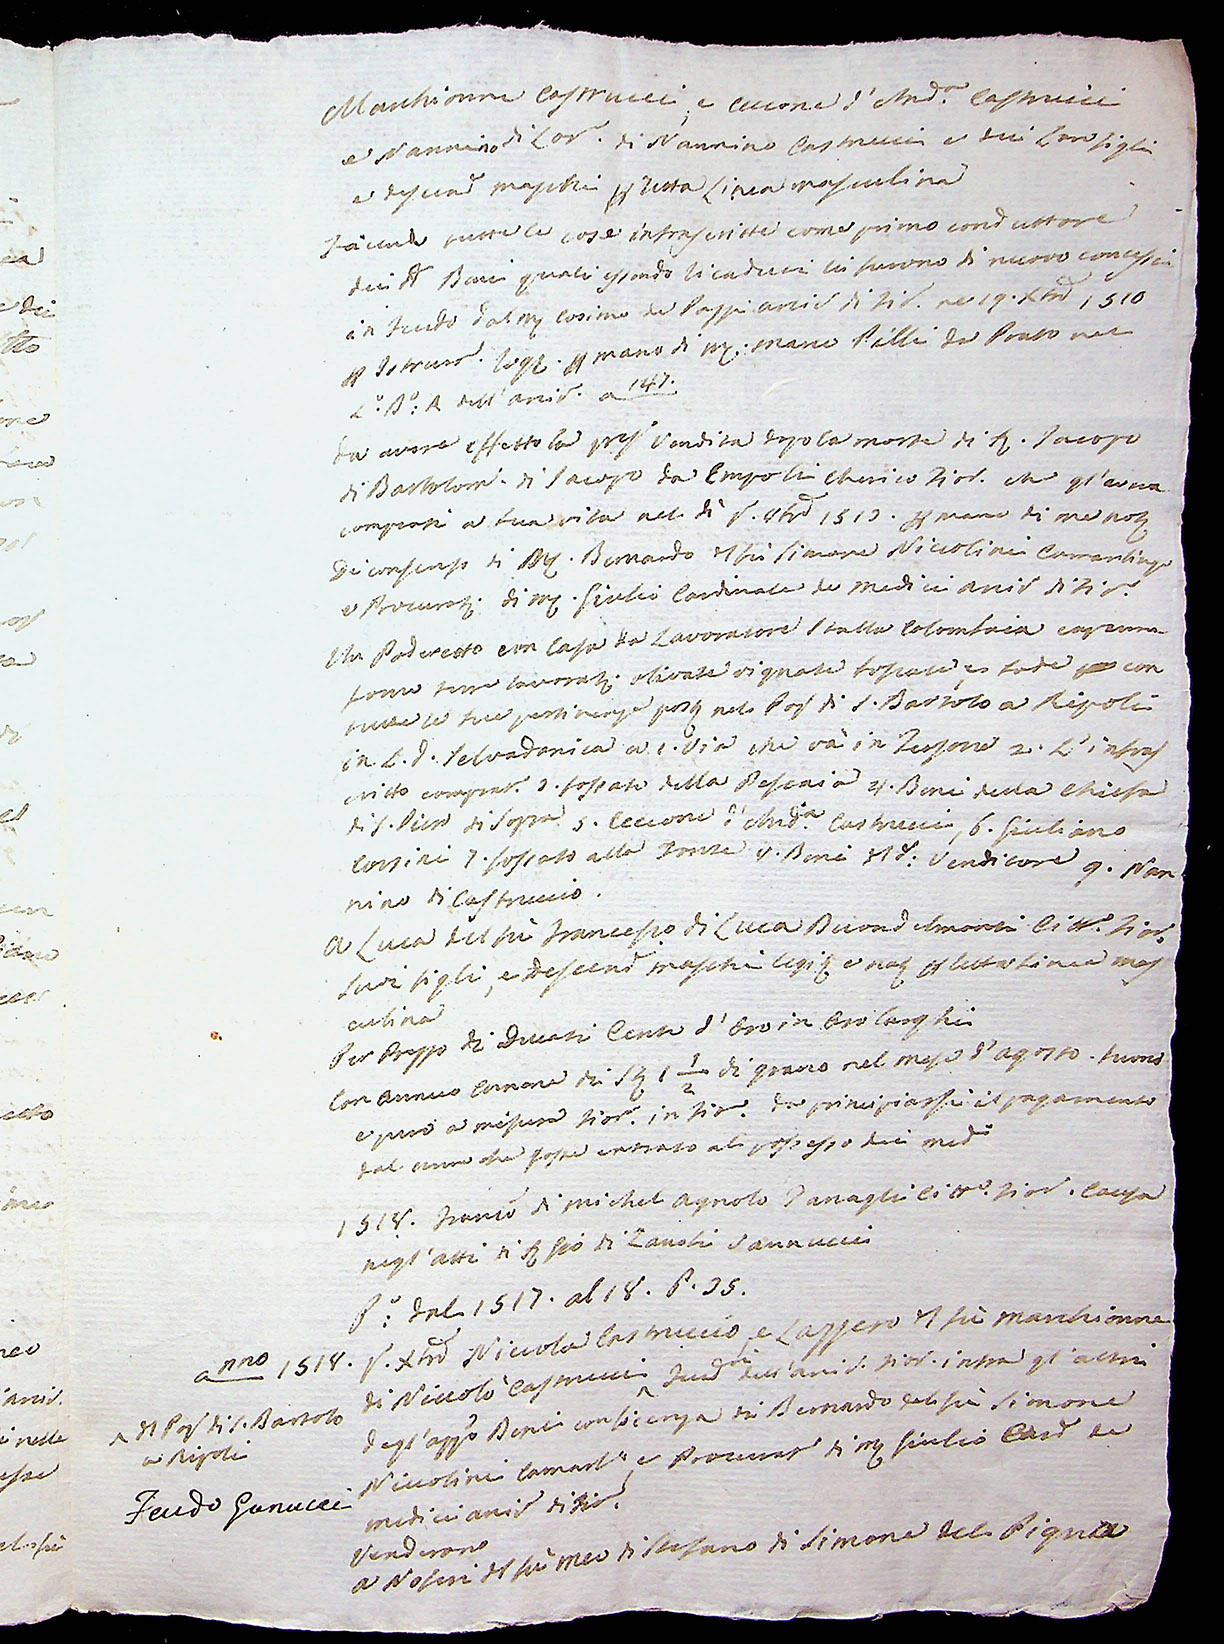 Marchionne Castrucci, e Ceccone d'And.ª Castrucci
e Nannino di Lor. di Nannino Castrucci e dei Lor figli
e descend maschi p retta Linea masculina
tutte le cose infrascritte come primo conduttore
dei Beni quali essendo ricaduti li furono di nuovo concessi
in feudo dal Cosimo de Pazzi arciv di Fior. ne 19. Xbre 1510
p Istrum. mano di Pilli da Prato nel
L.º B.º: A dell'arciv. a 147.
da avere effetto la pres vendita dopo la morte di S. Jacopo
di Bartolom. di Jacopo da Empoli Cherico Fior. che gl'aveva
comprati a sua vita nel dì 1513. p mano di me
Di consenso di M. Bernardo del fù Simone Niccolini Camarlingo
e Procurat. di M. Giulio Cardinale de Medici arciv di Fior.
Un Poderetto con Casa da Lavoratore Stalla Colombaia
terre lavorat. olivate vignate boscate, e sode con
tutte le sue pertinenze nel Pop di S. Bartolo a Ripoli
in L. d. Selvadonica a 1. Via che và in 2. L'infras
critto comprat. 3. fossato della Pescaia 4. Beni della Chiesa
di S. Piero di Sopra 5. Ceccone d'And.ª Castrucci, 6. Giuliano
Corsini 7. fossato alla fonte 8. Beni del d.: Venditore 9. Nan
nino di Castruccio.
A Luca del fù Francesco di Luca Buondelmonti Citt.º Fior.
suoi figli, e descend maschi legit e nat p retta Linea mas
culina
Per Prezzo di Ducati Cento d'Oro in Oro larghi
Con annuo Canone di St 1 1/2 di grano nel mese d'agosto buono
e puro a misura Fior. in Fior. da principiarsi il pagamento
dal anno che fosse entrato al possesso dei med.i
1518. Franc.º di Michel Agnolo Tanagli Citt.º Fior. Causa
negl'atti di S Gio di Zanobi Vannucci
P.º: dal 1517. al 18. P. 35.
anno 1518. Xbre Niccola Castruccio, e Lazzero del fù Marchionne
di Niccolò Castrucci ^ feud.ri dell'arciv. Fior. infra gl'altri
^ del Pop di S. Bartolo
a Ripoli
degl'app.º Beni con licenza di Bernardo del fù Simone
Niccolini Camarl.º, e Procurat di M Giulio Card de
Feudo Ganucci
medici arciv di Fior.
Venderono
a Noferi del fù Meo di Stefano di Simone del Pigna